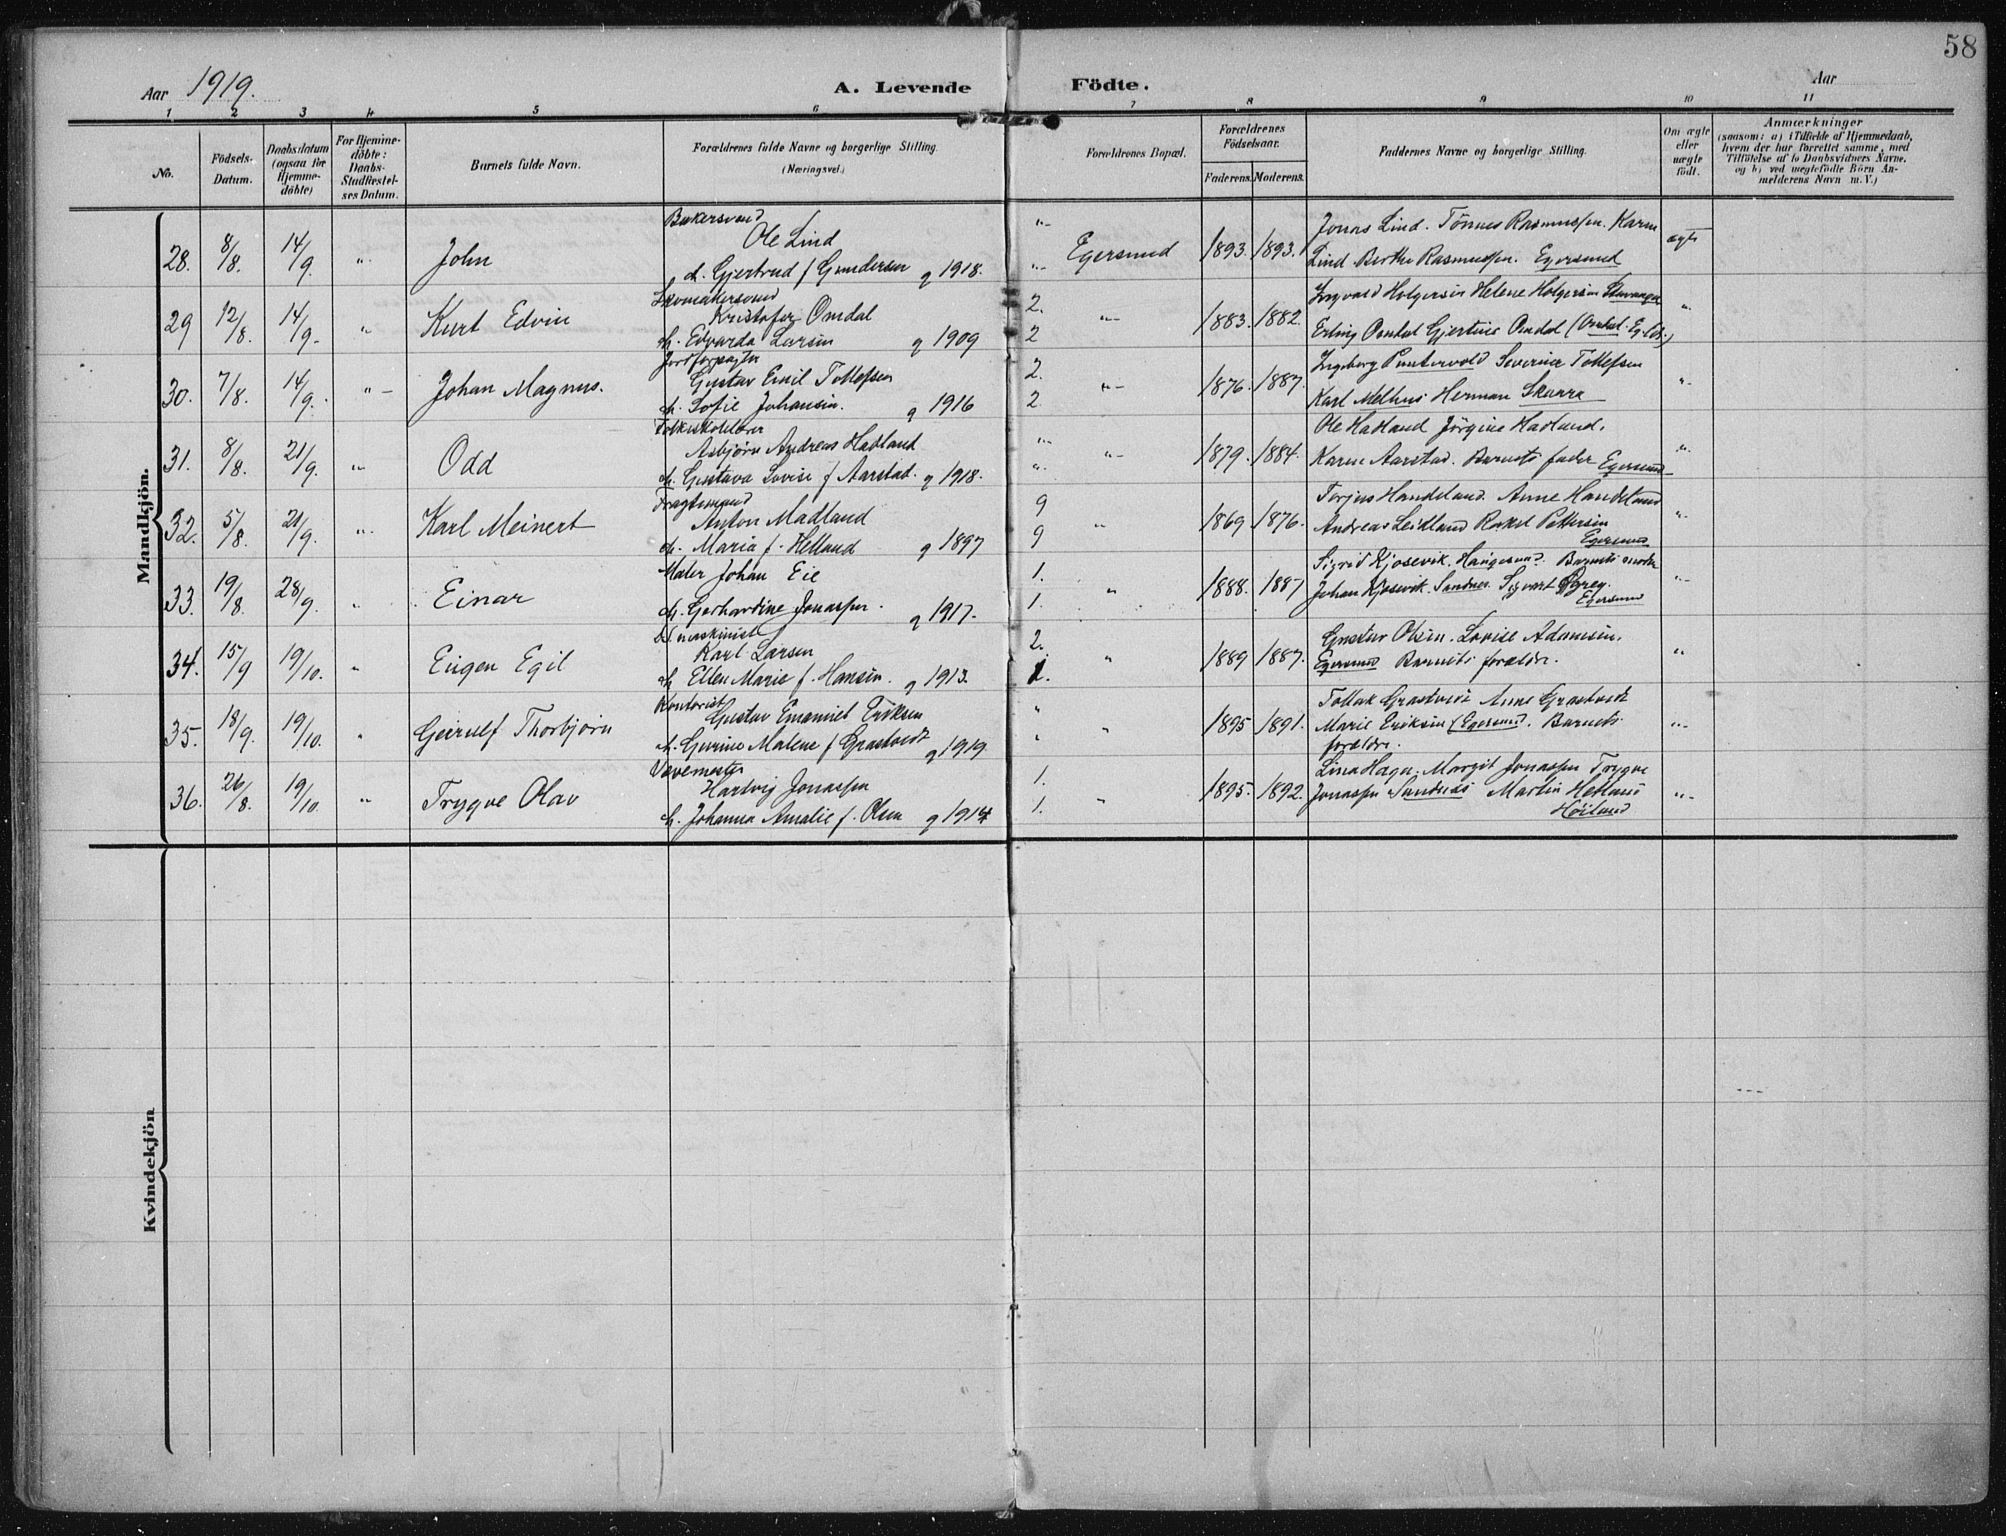 58
Aar 1919. A. Levende Födte. Aar
1 2 3 4 5 6 7 8 9 10 11
No. Födsels-Datum. Daabsdatum (ogsaa for Hjemme-döbte) For Hjemme-döbte: Daabs-Stadfæstel-ses Datum. Barnets fulde Navn. Forældrenes fulde Navne og borgerlige Stilling. (Næringsvei.) Forældrenes Bopæl. Forældrenes Födselsaar. Faderens. Moderens. Faddernes Navne og borgerlige Stilling. Om ægte eller uægte födt. Anmærkninger (saasom: a) i Tilfælde af Hjemmedaab, hvem der har forrettet samme, med Tilföielse af to Daabsvidners Navne, og b) ved uægtefödte Börn An-melderens Navn m. V.)
Mandkjön.
Bakersvend
Ole Lind " Jonas Lind. Tønnes Rasmussen. Karen
28. 8/8. 14/9. " John Egersund 1893. 1893. ægte
d. Gjertrud f Gundersen g 1918. " Lind. Berthe Rasmussen. Egersund
Skomakersvend
Kristofer Omdal 2. Ingvald Holgersen Helene Holgersen Stavanger
29 12/8. 14/9. " Kurt Edvin " 1883. 1882. "
h. Edvarda Larsen g 1909 2 Erling Omdal Gjertine Omdal (Omdal. Eg. lds.)
Jordforpagter
Gustav Emil Tollefsen 2. Ingeborg Puntervold Severine Tollefsen
30. 7/8. 14/9. " Johan Magnus. " 1876. 1887. "
h. Sofie Johansen. g 1916 2. Karl Melhus Herman Skaara
Folkeskolelærer
Asbjørn Andreas Hadland " Ole Hadland Jørgine Hadland.
31. 8/8. 21/9. " Odd " 1879. 1884. "
h. Gustava Lovise f Aarstad. g 1918. " Karen Aarstad. Barnets fader Egersund
Fragtemand
Anton Madland 9 Torjus Handeland Anne Handeland
32. 5/8. 21/9. " Karl Meinert " 1869 1876. Andreas Leidland Rakel Pettersen "
h. Maria f. Helland g 1897 9 Egersund
Maler Johan Eie 1. Sigrid Kjosevik. Haugesund. Barnets moder
33. 19/8. 28/9. " Einar " 1888. 1887 Johan Kjosevik Sandnes. Sigvart "
h. Gerhardine Jonassen. g 1917. 1. Egersund
Karl Larsen 2. Gustav Olsen. Lovise Adamsen.
34. 15/9 19/10. " Eugen Egil " 1889 1887. Egersund Barnets forældre. "
h Ellen Marie f. Hansen. g 1913. 1.
Kontorist
Gustav Emanuel Eriksen " Tollak Grastveit Anne Grastveit
35. 18/9. 19/10. " Geirulf Thorbjørn " 1895 1891. Marie Eriksen (Egersund. Barnets "
h. Gurine Malene f Grastveit g 1919 " forældre.
Vævemester
Hartvig Jonassen 1. Lina Haga. Margit Jonassen Trygve
36. 26/8. 19/10. " Trygve Olav " 1895. 1892. Jonassen Sandnes Martin Hetland "
h. Johanna Amalie f. Olsen g 1914 1. Høiland
Kvindekjön